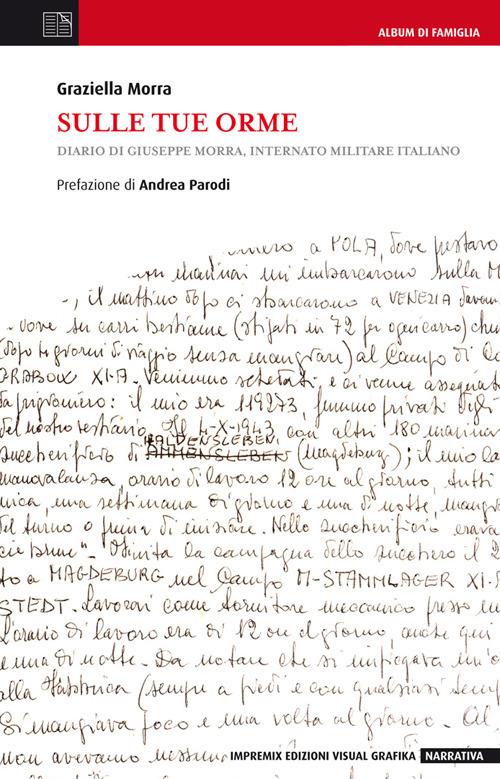 ALBUM DI FAMIGLIA
Graziella Morra
SULLE TUE ORME
DIARIO DI GIUSEPPE MORRA, INTERNATO MILITARE ITALIANO
Prefazione di Andrea Parodi
a POLA, dove
marinai mi imbarcarono sulla M
, il mattino dopo ci sbarcarono a VENEZIA
dove su carri bestiame (stipati in 72 per ogni carro) che
(dopo giorni di viaggio senza mangiare) al Campo di
GRABOW XI-A. Venimmo schedati, e ci venne assegnat
da prigioniero: il mio era 119273, fummo privati degli
del nostro vestiario. Il 4-X-1943 con altri 180 marinai
HALDENSLEBEN
zuccherificio di AMMENSLEBEN (magdeburg); il mio la
manovalanza, orario di lavoro 12 ore al giorno, tutti
una settimana di giorno e una di notte,
del turno o prima di iniziare. Nello zuccherificio erava
". Finita la campagna dello zucchero il 2
to a MAGDEBURG nel Campo M-STAMMLAGER XI-
STEDT. Lavorai come tornitore meccanico presso
L'orario di lavoro era di 12 ore al giorno, anche qui
e una di notte. Da notare che si impiegava un'o
alla Fabbrica (sempre a piedi e con qualsiasi temp
Si mangiava poco e una volta al giorno. Al
non avevamo nessun
IMPREMIX EDIZIONI VISUAL GRAFIKA NARRATIVA